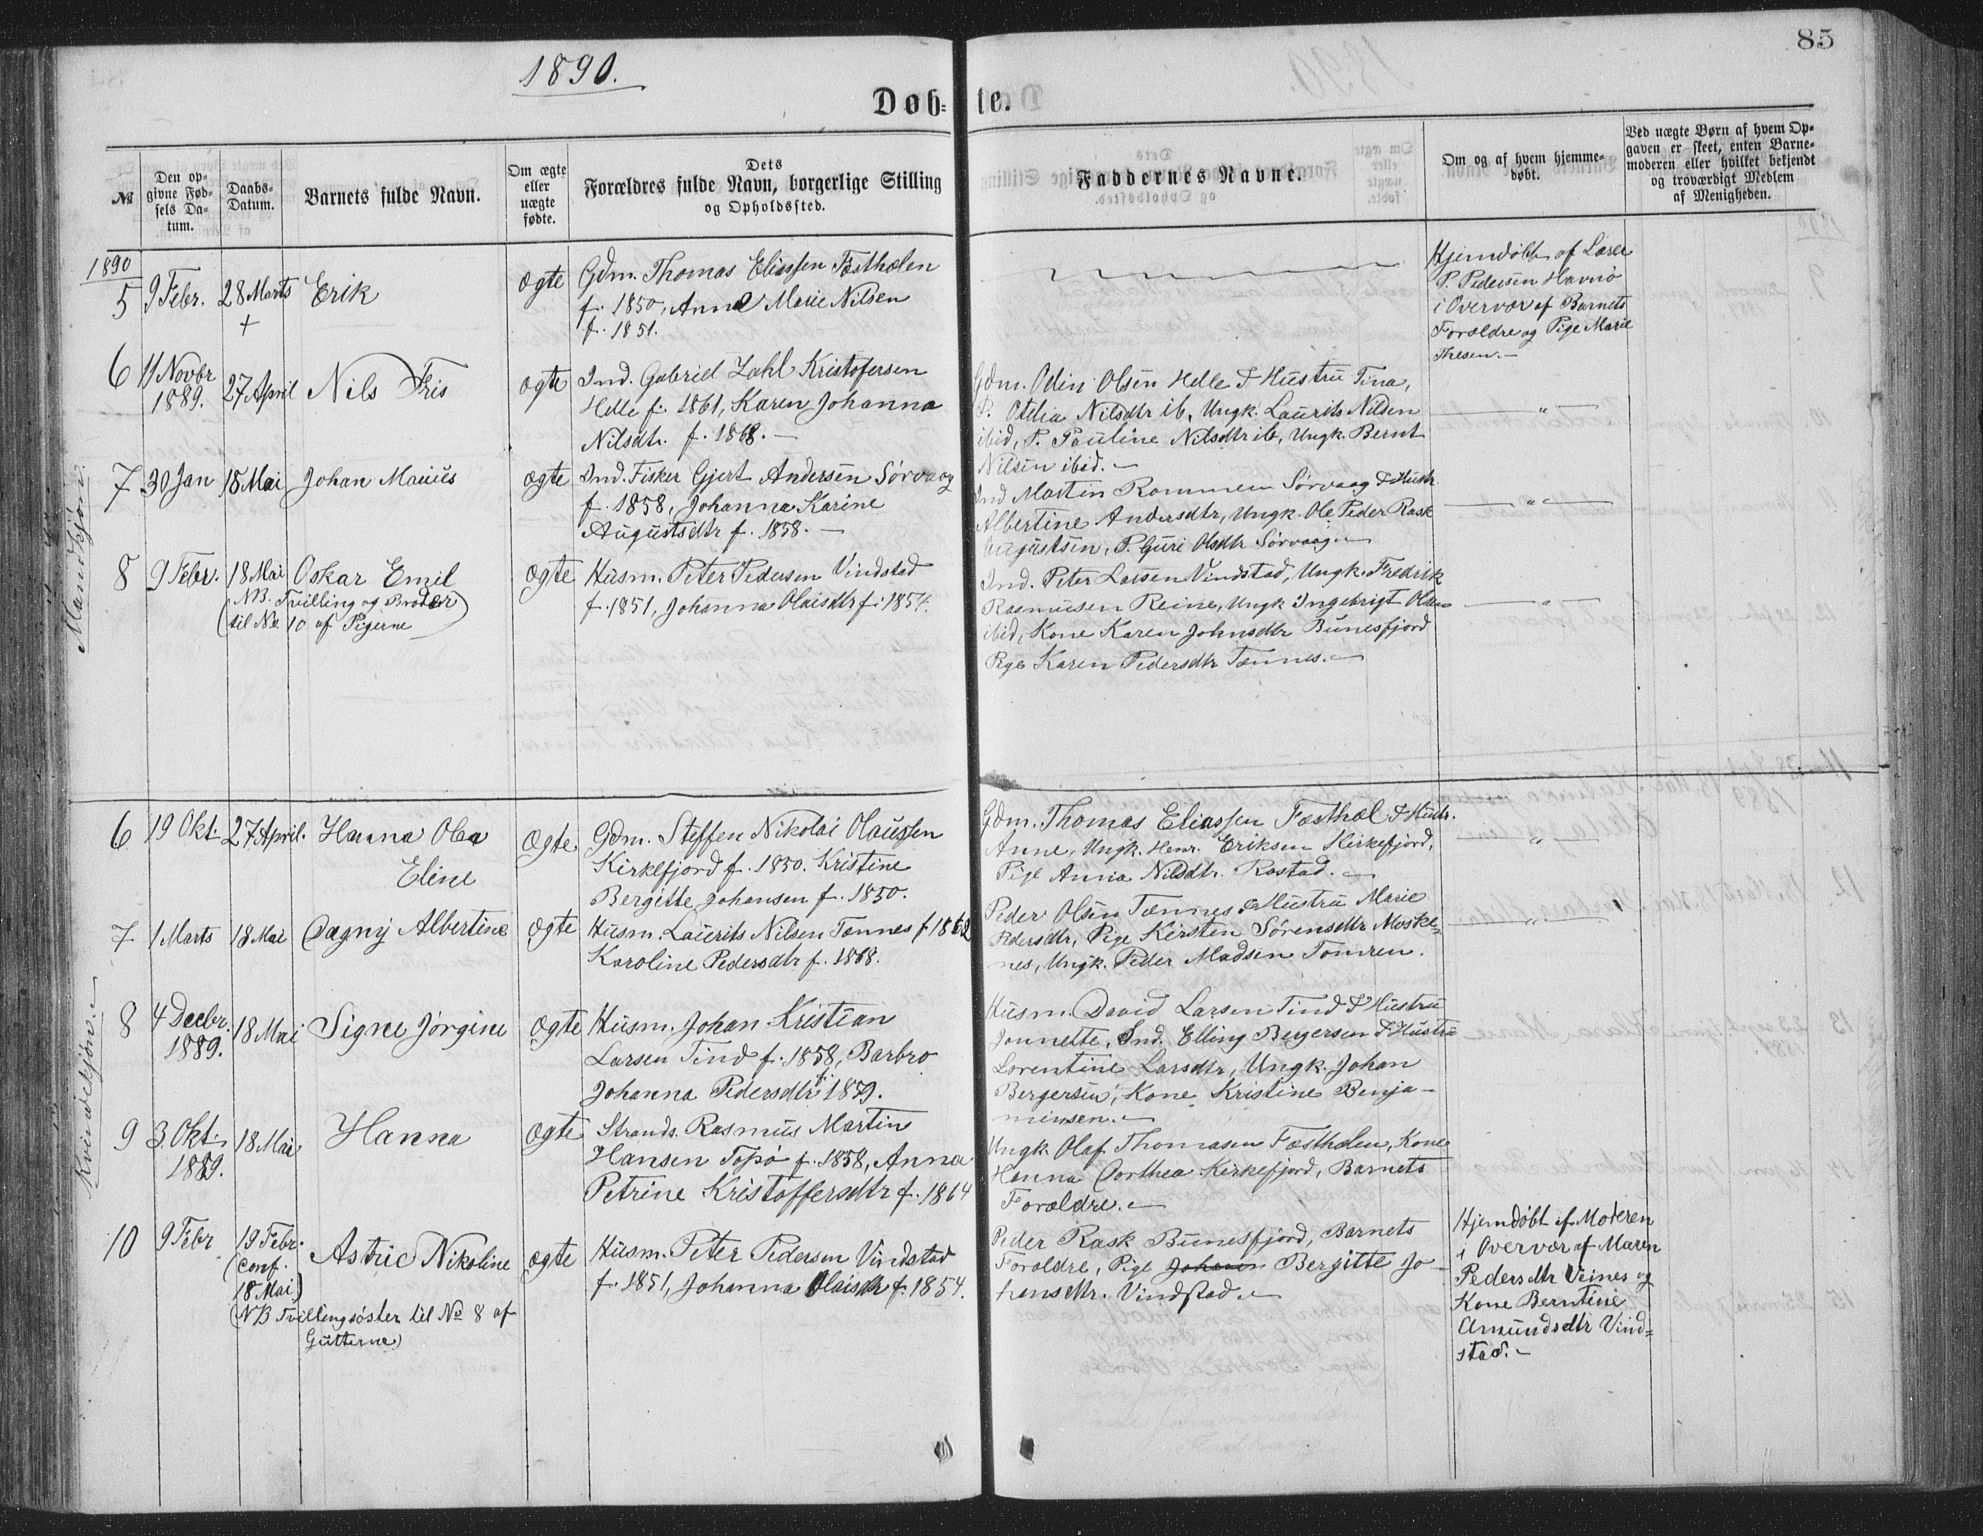 1890.
85
Døb-te.
№
Den op-
givne Fød-
sels Da-
tum.
Daabs-
Datum.
Barnets fulde Navn.
Om ægte
eller
uægte
fødte.
Dets
Forældres fulde Navn, borgerlige Stilling
og Opholdssted.
Faddernes Navne.
Om og af hvem hjemme-
døbt.
Ved uægte Børn af hvem Op-
gaven er skeet, enten Barne-
moderen eller hvilket bekjendt
og troværdigt Medlem
af Menigheden.
Mandkjøn.
1890
5 9 Febr. 28 Marts Erik ægte
+
Gdm. Thomas Eliassen Festhælen
f. 1850, Anne Marie Nilsen
f. 1851.
Hjemdøbt af Lærer
P. Pedersen Havnø
i Overvær af Barnets
Forældre og Pige Marie
Thesen.
6 11 Novbr 27 April Nils Fris ægte
1889.
Ind. Gabriel Zahl Kristofersen
Helle f. 1861, Karen Johanna
Nilsdtr. f. 1868.
Gdm. Odin Olsen Helle & Hustru Tina,
P. Otelia Nilsdtr ib, Ungk. Laurits Nilsen
ibid, P. Pauline Nilsdtr ib, Ungk. Bernt
Nilsen ibid.
"
7 30 Jan 18 Mai Johan Mauus ægte
Ind. Fisker Gjert Andersen Sørvaag
f. 1858, Johanna Karine
Augustsdtr f. 1858.
Ind Martin Rommen Sørvaag & Hustr
Albertine Andersdtr, Ungk. Ole Peder Rask
Augustsen, P. Guri Olsdtr Sørvaag
"
8 9 Febr. 18 Mai Oskar Emil ægte
(NB. Tvilling og Broder
til No 10 af Pigerne)
Husm. Peter Pedersen Vindstad
f. 1851, Johanna Olaisdtr f. 1854.
Ind. Peter Larsen Vindstad, Ungk. Fredrik
Rasmussen Reine, Ungk Ingebrigt Olsen
ibid, Kone Karen Johnsdtr Bunesfjord
Pige Karen Pedersdtr Tennes.
"
Kvindekjøn.
6 19 Okt. 27 April. Hanna Olea ægte
Eline
Gdm. Steffen Nikolai Olaussen
Kirkefjord f. 1850. Kristine
Bergitte Johansen f. 1850.
Gdm. Thomas Eliassen Festhæl & Hustr.
Anne, Ungk. Henr. Eriksen Kirkefjord,
Pige Anna Nilsdtr. Rostad.
"
7 1 Marts 18 Mai Dagny Albertine ægte
Husm. Laurits Nilsen Tennes f 1862
Karoline Pedersdtr f. 1868.
Peder Olsen Tennes & Hustru Marie
Pedersdtr, Pige Kirsten Sørensdtr Moske-
nes, Ungk. Peder Madsen Tomren.
"
8 4 Decbr. 18 Mai Signe Jørgine ægte
1889.
Husm. Johan Kristian
Larsen Tind f. 1858, Barbro
Johanna Pedersdtr f. 1859.
Husm. David Larsen Tind & Hustru
Jonnette, Ind. Elling Bergersen & Hustru
Lorentine Larsdtr, Ungk. Johan
Bergersen, Kone Kristine Benja-
minsen.
9 3. Okt. 18 Mai. Hanna ægte
1889.
Strands. Rasmus Martin
Hansen Topø f. 1858, Anna
Petrine Kristoffersdtr f. 1864
Ungk Olaf Thomasen Festhælen, Kone
Hanna Dorthea Kirkefjord, Barnets
Forældre.
10 9 Febr 19 Febr. Astric Nikoline ægte
(conf.
18 Mai)
(NB Tvillingsøster til No 8 af
Gutterne)
Husm. Peter Pedersen Vindstad
f. 1851, Johanna Olaisdtr f. 1854.
Peder Rask Bunesfjord, Barnets
Forældre, Pige Johann Bergitte Jo-
hansdtr. Vindstad.
Hjemdøbt af Moderen
i Overvær af Maren
Pedersdtr Veines og
Kone Berntine
Amundsdtr Vind-
stad.